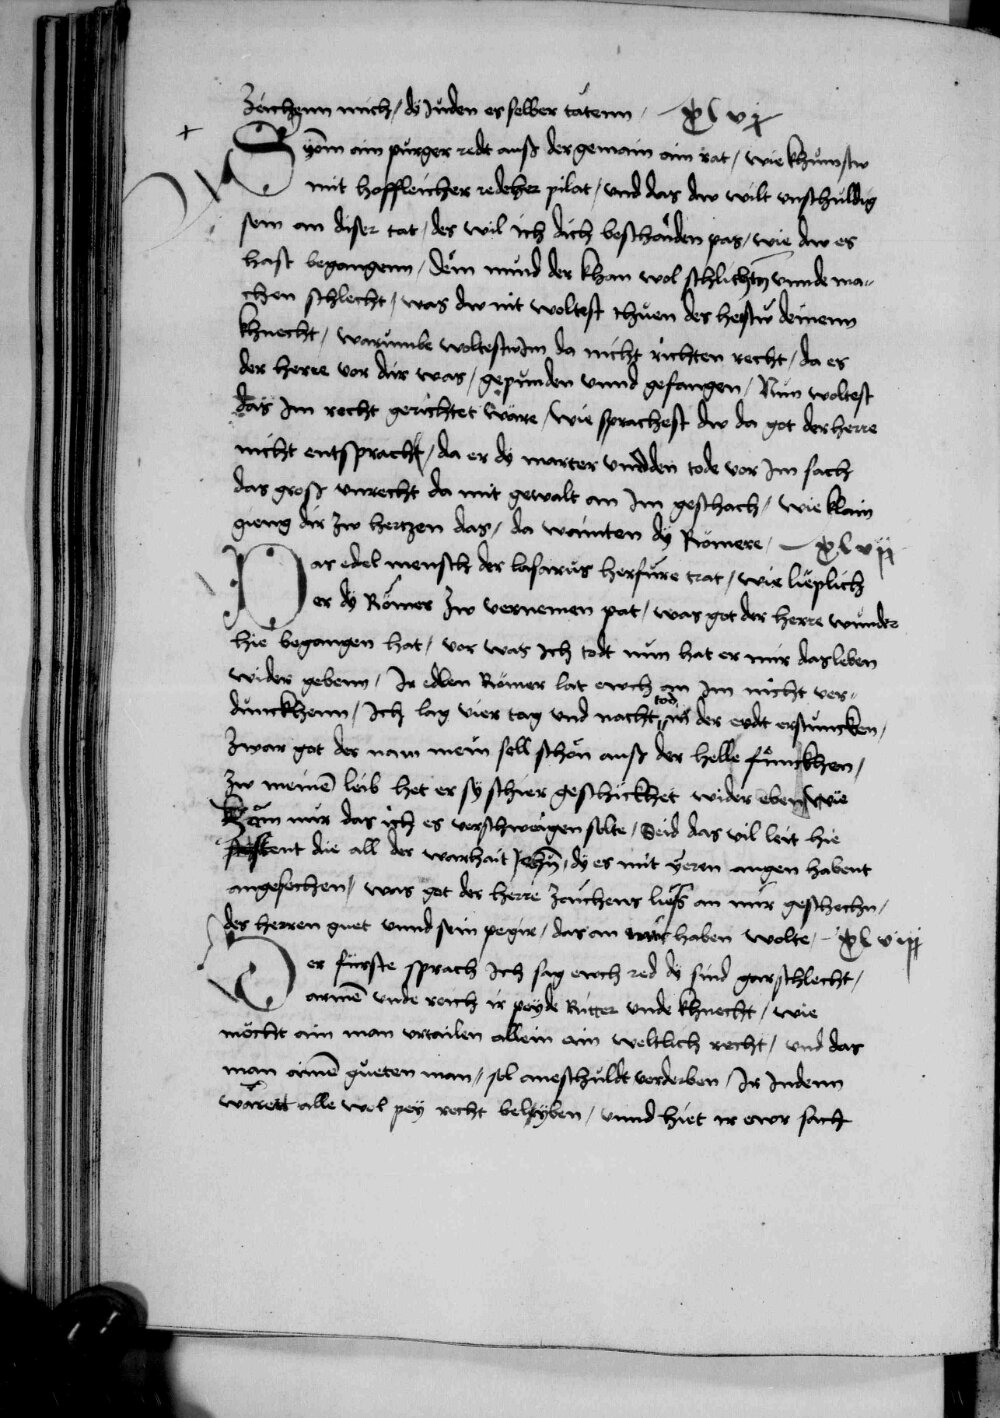 Zaichenn mich / dÿ Juden es selber tätenn / xlvj
Syon ain purger redt auß der gemain ain rat / wie khunstw
mit hoffleicher rede her pilat / vnd das dw wilt vnschuldig
sein an diser tat / des wil ich dich beschaiden pas / wie dw es
hast begangenn / dein mund der khan wol schlichtn vnnde ma-
chen schlecht / was dw nit woltest thuen des hestw deinenn
khnecht / warumbe woltestw Im da nicht richten recht / da es
der herre vor dir was / gepunden vnnd gefangen / Nun woltest
das Im recht gerichtet wäre / wie sprachest dw da got der herre
nicht entsprach / da er dÿ marter vnd den tode vor Im sach
das groß vnrecht da mit gewalt an Im geschach / wie klain
gieng dir Zw hertzen das / da wainten dÿ Römere / xlvij
Das edel mensch der lasarus herfüre trat / wie lieplich
er dÿ Römer Zw vernemen pat / was got der herre wunder
hie begangen hat / vor was ich todt nun hat er mir das leben
wider gebenn / Ir edlen Römer lat ewch an Im nicht ver-
dunckhenn / Ich lag vier tag vnd nacht tod in der erdt erstuncken /
Zwar got der nam mein sell schön auß der helle funckhen /
Zw meinē leib het er sÿ schier geschickhet wider eben / wie
käm mir das ich es verschweigen solte / Seid das vil leit hie
stent die all der warhait Jehn / dÿ es mit yeren augen habent
angesechen / was got der herre Zaichens ließ an mir geschechn /
des herren guet vnnd sein pegir / das an mir haben wolte / xlviij
Der fürste sprach Ich sag ewch red dÿ sind gar schlecht /
armē vnde reich ir peyde Ritter vnde khnecht / wie
möcht ain man vrtailen allein ain weltlich recht / vnd das
man aimē gueten man / sol aneschuldt verderben / Ir Indenn
wärett alle wol peÿ recht beleÿben / vnnd hiet ir ewr sach